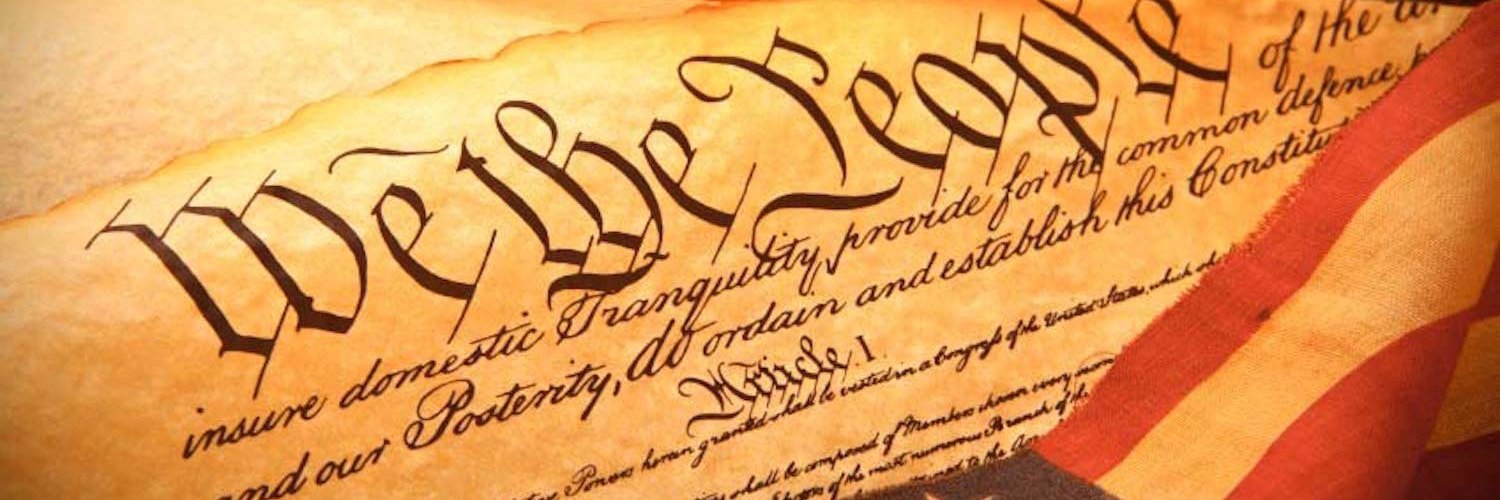 We the People of the
insure domestic Tranquility, provide for the common defence,
and our Posterity, do ordain and establish this
Article. I.
Powers herein granted shall be vested in a Congress of the United States, which
shall be composed of Members chosen every
of the most numerous Branch of the
to the